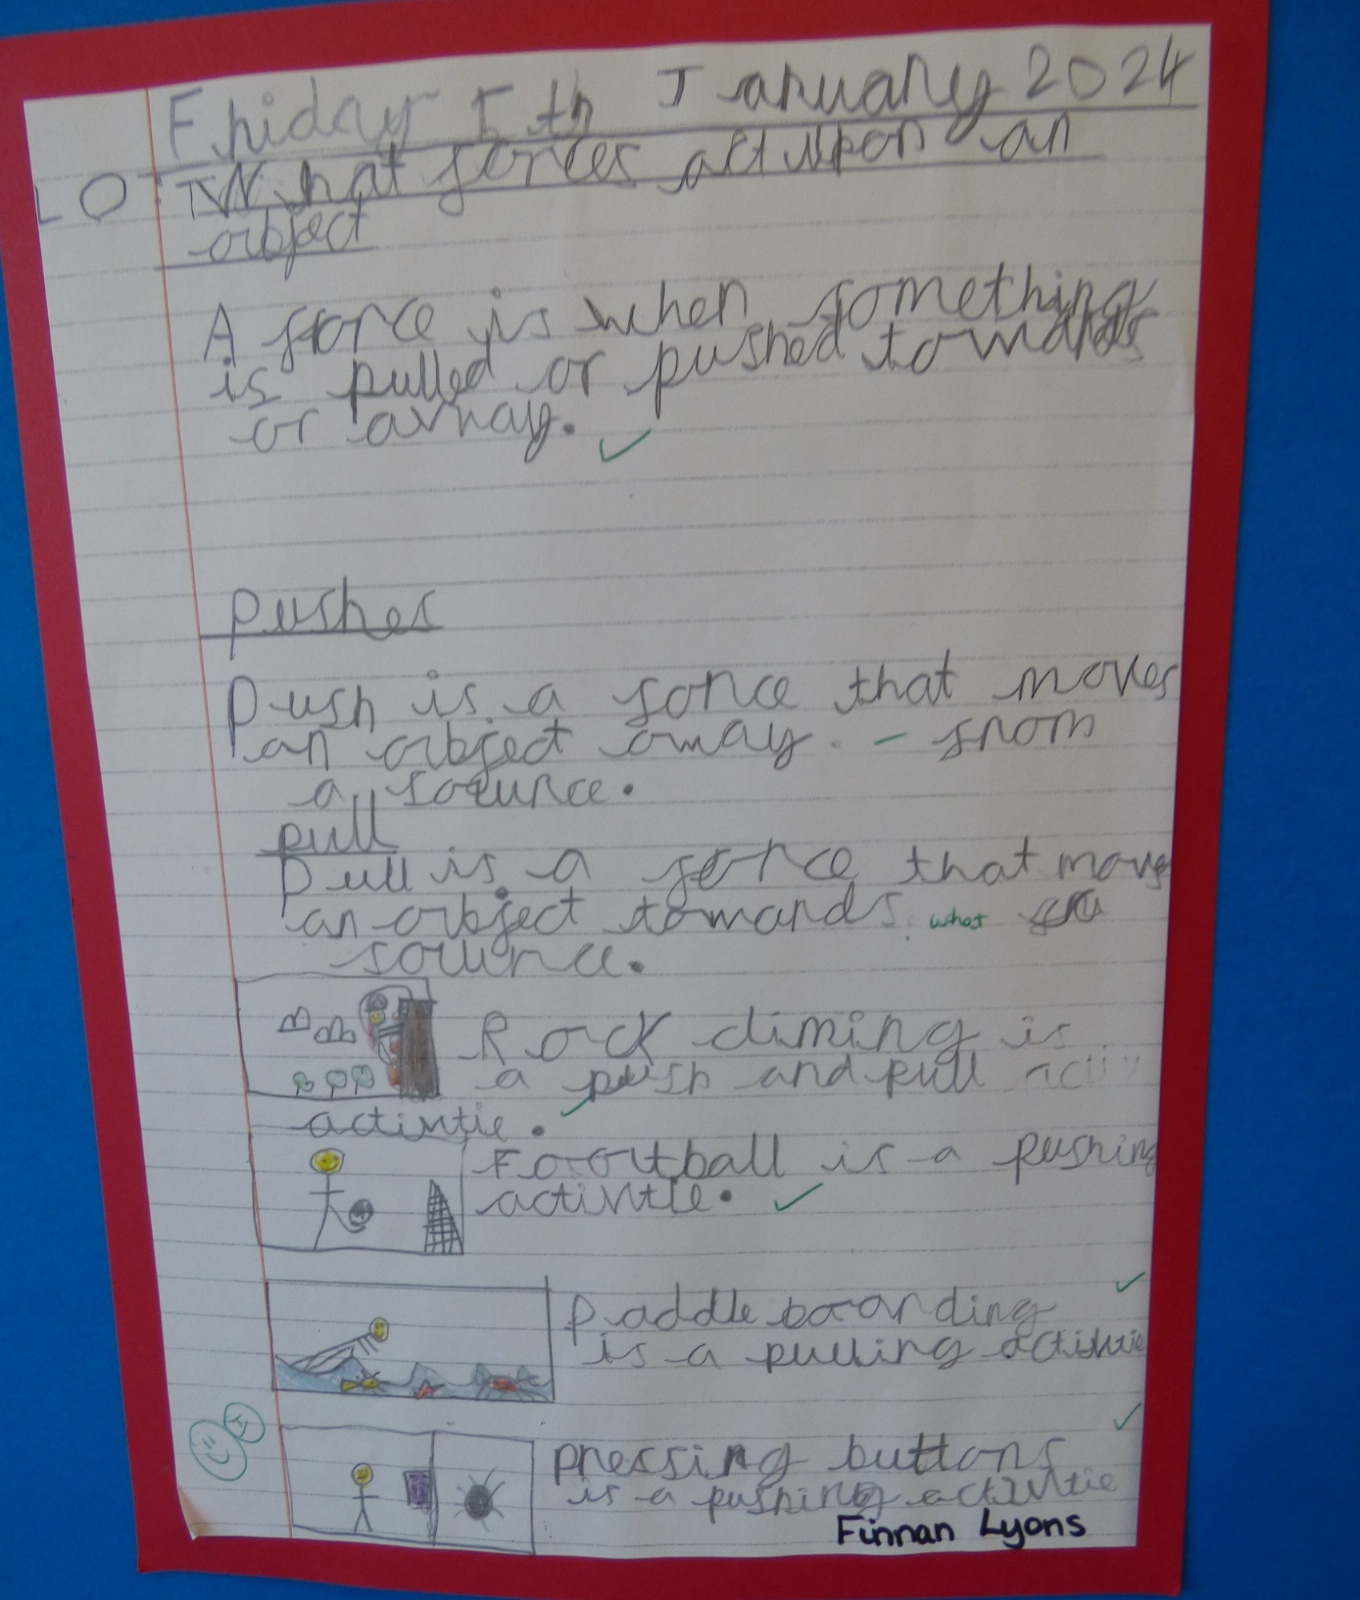 Friday 5th January 2024
LO: What forces act upon an
object
A force is when something
is pulled or pushed towards
or away.
pushes
Push is a force that moves
an object away. - from
a source.
pull
Pull is a force that move
an object towards. what
source.
Rock climing is
a push and pull
activtie.
Football is a pushing
activtie.
Paddle boarding
is a pulling activtie
pressing buttons
is a pushing activtie
Finnan Lyons